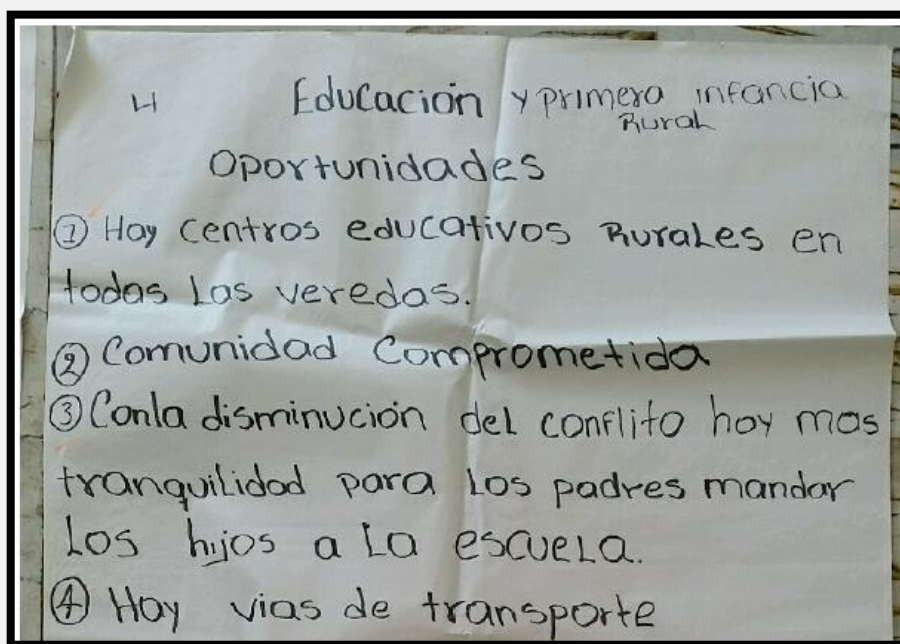 4 Educación y primera infancia
Rural
Oportunidades
① Hay centros educativos Rurales en
todas Las veredas.
② Comunidad Comprometida
③ Conla disminución del conflito hay mas
tranquilidad para los padres mandar
Los hijos a La escuela.
④ Hay vias de transporte